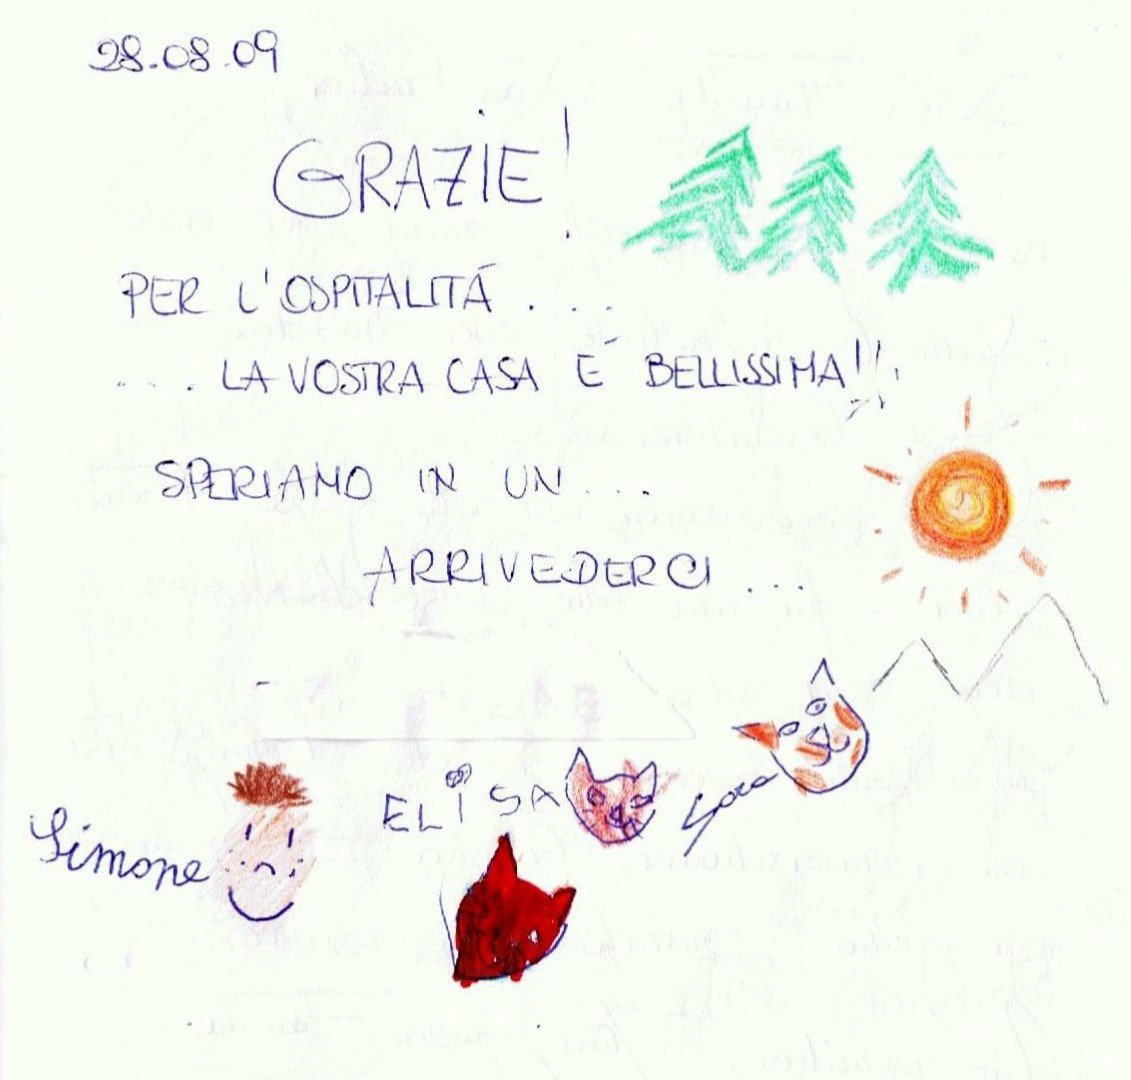 28.08.09
GRAZIE!
PER L'OSPITALITÁ ....
.... LA VOSTRA CASA É BELLISSIMA!!!
SPERIAMO IN UN ...
ARRIVEDERCI ...
Simone ELISA Sara